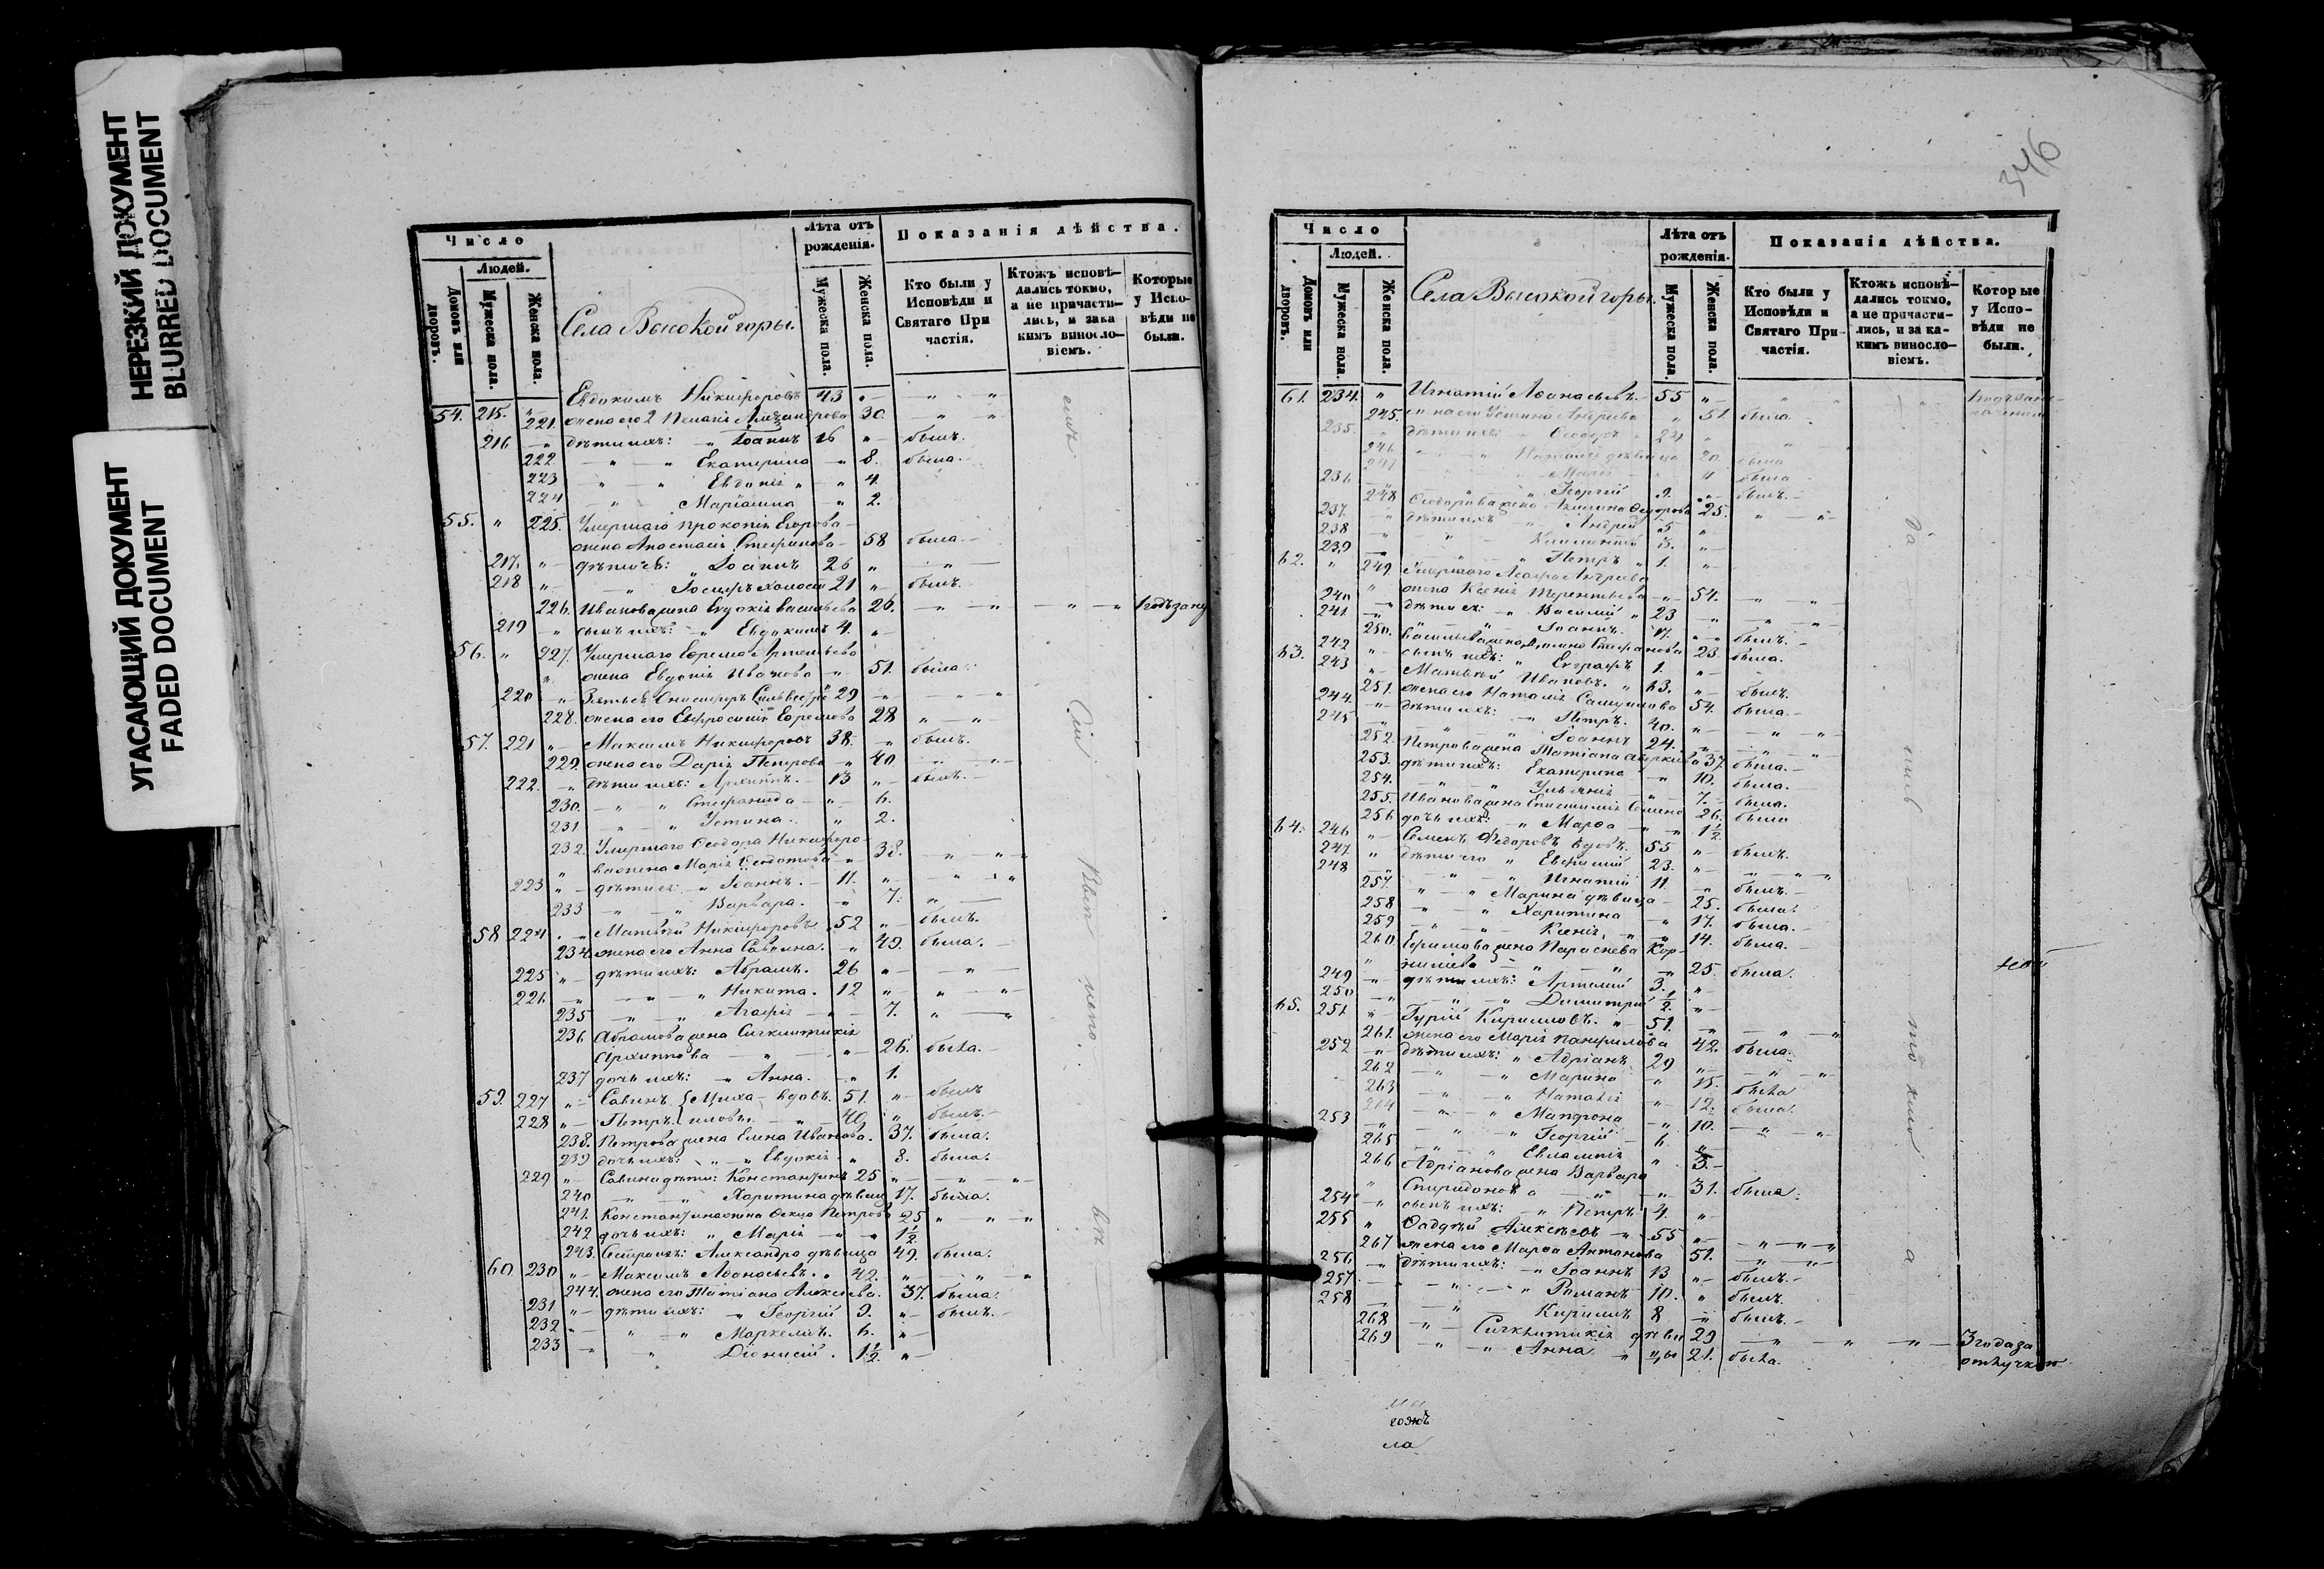 НЕРЕЗКИЙ ДОКУМЕНТ
BLURRED DOCUMENT
УГАСАЮЩИЙ ДОКУМЕНТ
FADED DOCUMENT
Число
Людей.
Домовъ или дворовъ.
Мужеска пола.
Женска пола.
Села Высокой горы.
Лѣта отъ рожденія.
Мужеска пола.
Женска пола.
Показанія дѣйства.
Кто были у Исповѣди и Святаго При частія.
Ктожъ исповѣ-дались токмо, а не причасти-лись, и зака кимъ виносло-віемъ.
Которые у Испо-вѣди не были.
Евдокимъ Никифоровъ 43
54. 215. 221. жена его 2 Пелагія Александрова 30.
216 дѣти ихъ: Іоаннъ 16 былъ.
222. Екатерина 8. была.
223 Евдокія 4.
224 Маріамна 2.
55. 225. Умершаго Прокопія Егорова
жена Анастасія Стефанова 58 была.
217. дѣти еѣ: Іоаннъ 26
218 Іосифъ холостъ 21 былъ.
226. Иванова жена Евдокія Васильева 26.
219 сынъ ихъ: Евдокимъ 4.
56. 227. Умершаго Ефрема Артемьева
жена Евдокія Иванова 51. была.
220 Зять еѣ Онисифоръ 29
228. жена его Евфросинія Ефремова 28
57. 221 Максимъ Никифоровъ 38. былъ.
229. жена его Дарія Петрова 40
222. дѣти ихъ: Архиппъ. 13 былъ.
230. Стефанида 6.
231 Устина. 2.
232. Умершаго Ѳеодора Никифоро-
ва жена Марія Ѳеодотова 38.
223 дѣти еѣ: Іоаннъ. 11.
233 Варвара. 7.
58 224 Матвѣй Никифоровъ. 52 былъ.
234. жена его Анна Савелина. 49. была.
225 дѣти ихъ: Абрамъ. 26
226. Никита. 12
235 Агафія 7.
236. Абрамова жена Сигклитикія
Архиппова 26. была.
237 дочь ихъ: Анна. 1.
59. 227 Савинъ Миха- вдовъ. 51. былъ
228 Петръ иловы. 40. былъ.
238. Петрова жена Елена Иванова. 37. была.
239 дочь ихъ: Евдокія 8. была.
229 Савина дѣти: Константинъ 25
240 Харитина дѣвица 17. была.
241. Константина жена Ѳекла Петрова 25
242 дочь ихъ: Марія 1½
243. Сестра ихъ: Александра дѣвица 49. была.
60. 230 Максимъ Аѳанасьевъ. 42.
244. жена его Татіана Алексѣева. 37. была.
231 дѣти ихъ: Георгій 9. былъ.
232 Маркеллъ. 6.
233 Діонисій. 1½
346
Число
Людей.
Домовъ или дворовъ.
Мужеска пола.
Женска пола.
Села Высокой горы.
Лѣта отъ рожденія.
Мужеска пола.
Женска пола.
Показанія дѣйства.
Кто были у Исповѣди и Святаго При-частія.
Ктожъ исповѣ-дались токмо, а не причасти-лись, и за ка-кимъ винословіемъ.
Которые у Испо-вѣди не были.
61. 234. Игнатій Аѳанасьевъ. 55
245. жена его Устина Андреева 51. была.
235. дѣти ихъ: Ѳеодоръ 24
246. Наталія дѣвица 20. была
247 Марія 11 была
236 Георгій 9. былъ.
248 Ѳеодорова жена Акилина Ѳедорова 25.
237. дѣти ихъ Андрей 5
238 Климентій 3.
239 Петръ 1.
62. 249 Умершаго Агафа Андреева
жена Ксенія Терентьева 54.
240 дѣти еѣ: Василій 23
241. Іоаннъ. 17. былъ.
250. Васильева жена Стефанова 23. была.
242 сынъ ихъ: Евграфъ 1.
63. 243 Матвѣй Ивановъ. 63. былъ.
251. жена его Наталія Самуилова 54. была.
244. дѣти ихъ: Петръ. 40.
245 Іоаннъ 24.
252. Петрова жена Татіана Аверкіева 37. была.
253. дѣти ихъ: Екатерина 10. была.
254. Ульянія 7. была.
255. Иванова жена Епистимія Семено 26. была
256 дочь ихъ: Марѳа 1½
64. 246 Семенъ Ѳедоровъ вдовъ. 55 былъ.
247. дѣти его Евфимій 23.
248 Игнатій 11. былъ.
257. Марина дѣвица 25. была.
258 Харитина 17. была.
259 Ксенія 14. была.
260. Ефимова жена Параскева Кор-
ниліева 25. была.
249 дѣти ихъ: Артемій 3.
250 Димитрій ½
65. 251 Гурій Кирилловъ. 51.
261. жена его Марія Панфилова 42. была.
252 дѣти ихъ: Адріанъ 20
262 Марина 15. была
263 Наталія 12. была.
264 Матрона 10.
253 Георгій 6.
265 Евлампія 3.
266 Адріанова жена Варвара
Спиридонова 31. была.
254 сынъ ихъ: Петръ 4.
255 Ѳаддей Алексѣевъ 55
267 жена его Марѳа Антонова 51.
256 дѣти ихъ: Іоаннъ 13 былъ.
257. Романъ 10. былъ.
258 Кириллъ 8 былъ.
268 Сигклитикія дѣви 29 3 года за
269 Анна 21. была. отлучкою